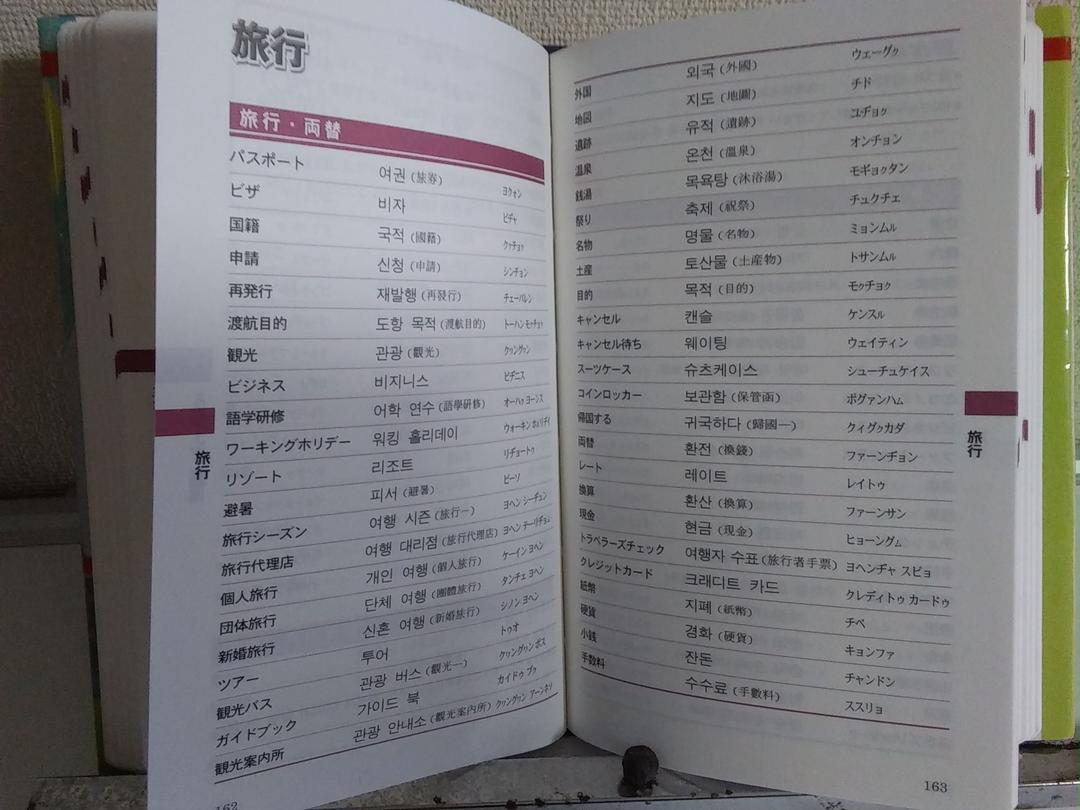 旅行
旅行・両替
パスポート 여권 (旅券) ヨクォン
ビザ 비자 ピヂャ
国籍 국적 (國籍) クッチョク
申請 신청 (申請) シンチョン
再発行 재발행 (再發行) チェーバレン
渡航目的 도항 목적 (渡航目的) トーハン モクチョク
観光 관광 (觀光) クヮングヮン
ビジネス 비지니스 ビヂニス
語学研修 어학 연수 (語學研修) オーハク ヨーンス
ワーキングホリデー 워킹 홀리데이 ウォーキン ホルリデイ
リゾート 리조트 リヂョートゥ
避暑 피서 (避暑) ピーソ
旅行シーズン 여행 시즌 (旅行ー) ヨヘン シーヂュン
旅行代理店 여행 대리점 (旅行代理店) ヨヘン テーリヂョム
個人旅行 개인 여행 (個人旅行) ケーイン ヨヘン
団体旅行 단체 여행 (團體旅行) タンチェ ヨヘン
新婚旅行 신혼 여행 (新婚旅行) シノン ヨヘン
ツアー 투어 トゥオ
観光バス 관광 버스 (觀光ー) クヮングヮン ボス
ガイドブック 가이드 북 カイドゥ ブク
観光案内所 관광 안내소 (觀光案內所) クヮングヮン アーンネソ
162
旅行
外国 외국 (外國) ウェーグク
地図 지도 (地圖) チド
遺跡 유적 (遺跡) ユヂョク
温泉 온천 (溫泉) オンチョン
銭湯 목욕탕 (沐浴湯) モギョクタン
祭り 축제 (祝祭) チュクチェ
名物 명물 (名物) ミョンムル
土産 토산물 (土産物) トサンムル
目的 목적 (目的) モクチョク
キャンセル 캔슬 ケンスル
キャンセル待ち 웨이팅 ウェイティン
スーツケース 슈츠케이스 シューチュケイス
コインロッカー 보관함 (保管函) ポグァンハム
帰国する 귀국하다 (歸國ー) クィグゥカダ
両替 환전 (換錢) ファーンヂョン
レート 레이트 レイトゥ
換算 환산 (換算) ファーンサン
現金 현금 (現金) ヒョーングム
トラベラーズチェック 여행자 수표 (旅行者手票) ヨヘンヂャ スピョ
クレジットカード 크래디트 카드 クレディトゥ カードゥ
紙幣 지폐 (紙幣) チペ
硬貨 경화 (硬貨) キョンファ
小銭 잔돈 チャンドン
手数料 수수료 (手數料) ススリョ
163
旅行